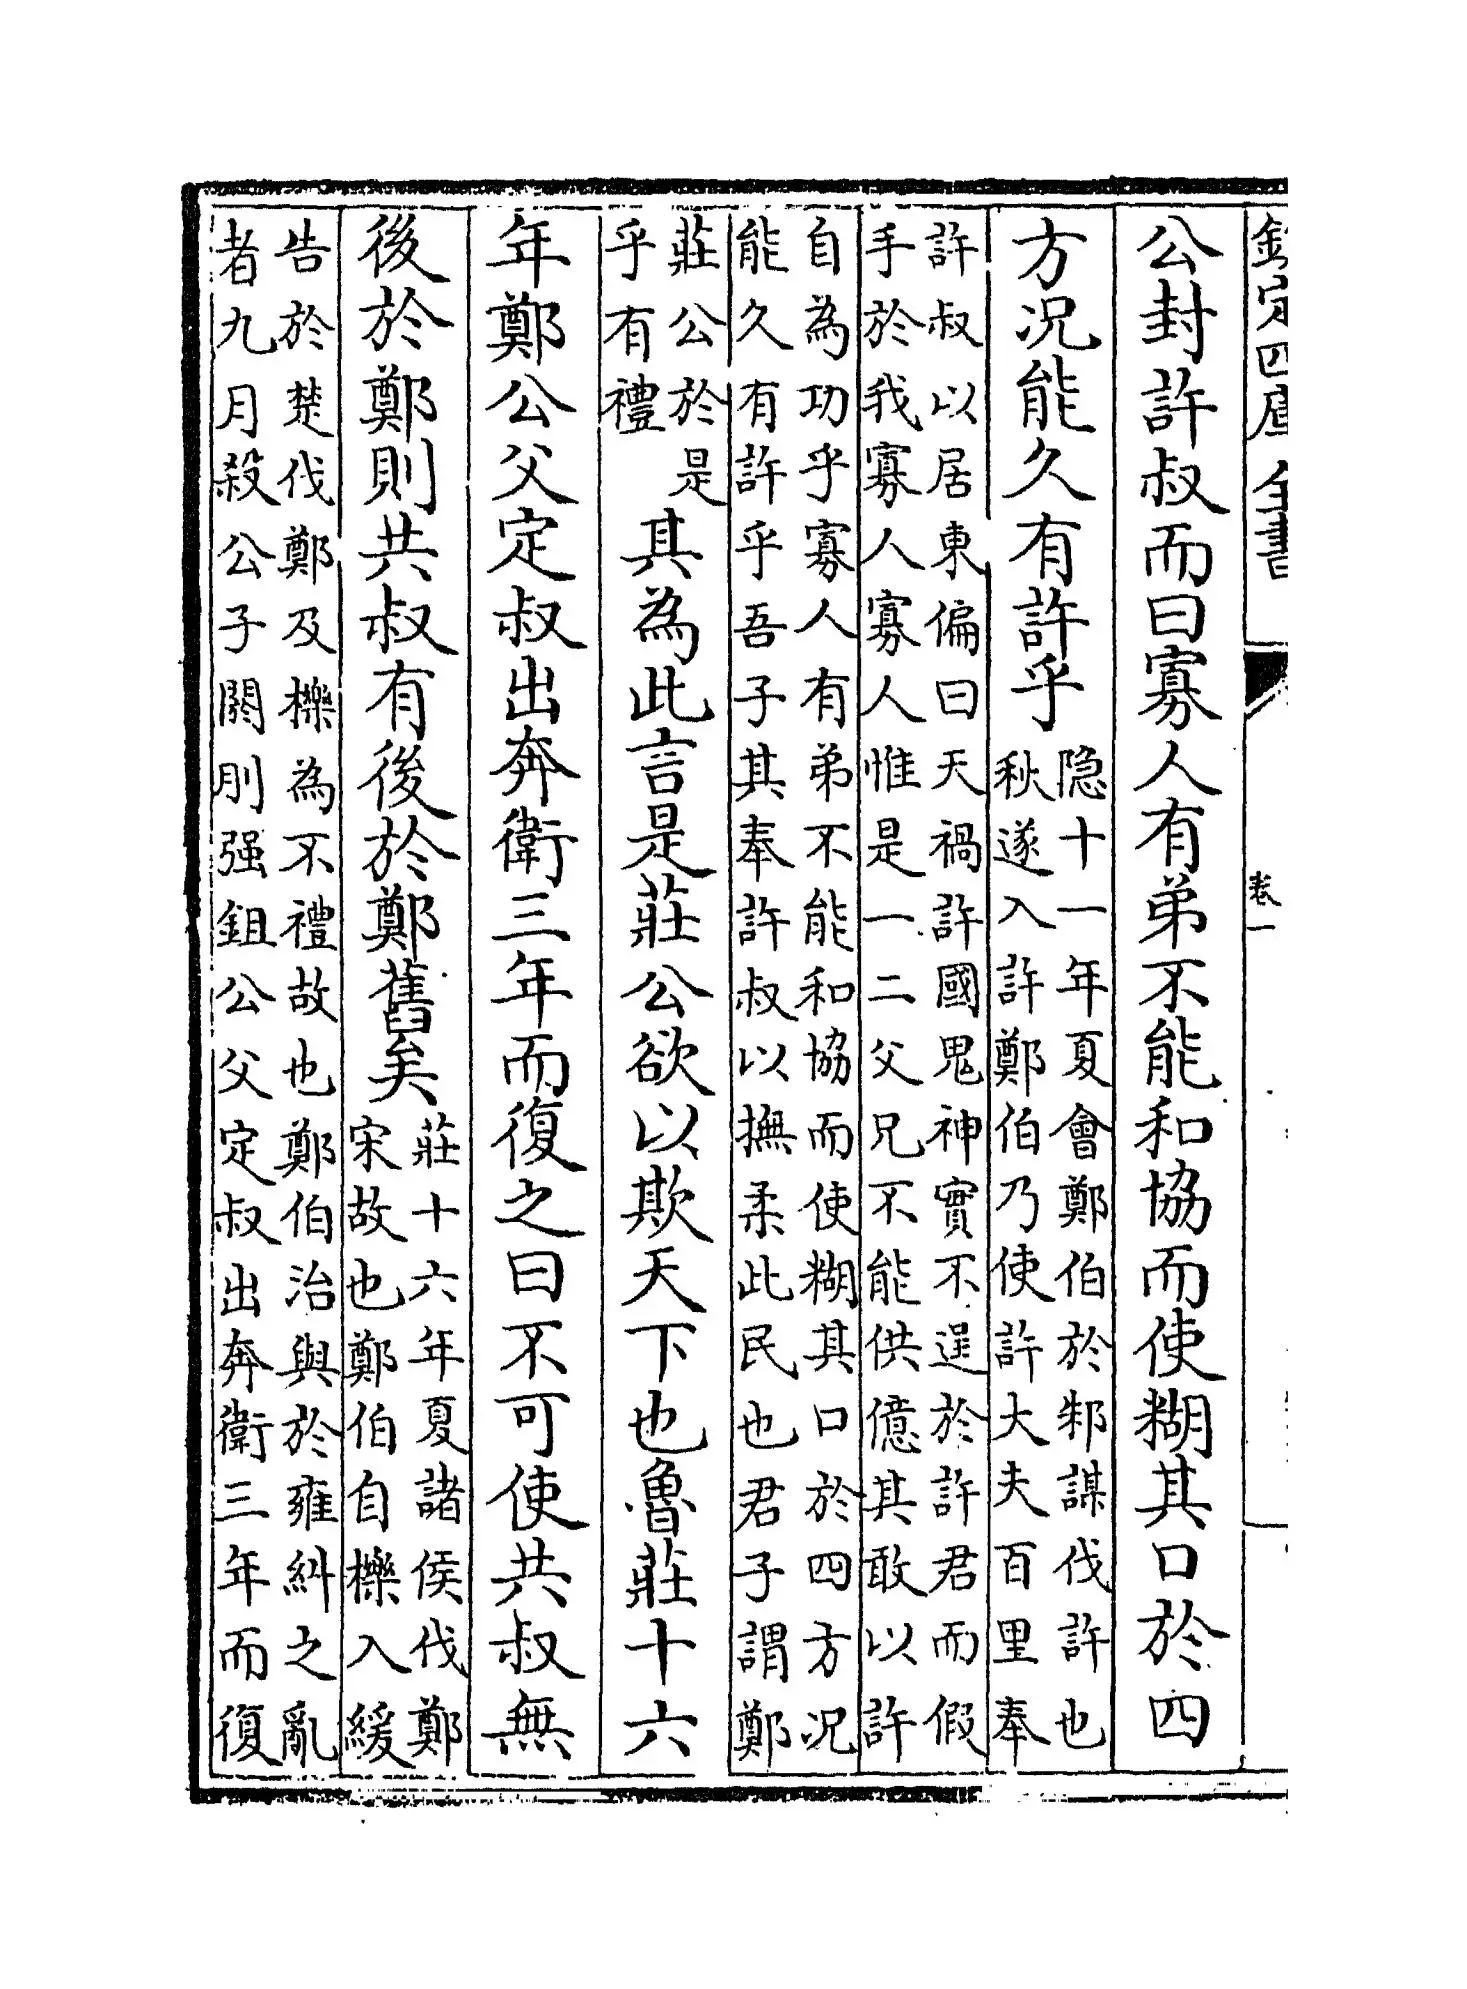 欽定四庫全書
卷一
公封許叔而曰寡人有弟不能和協而使糊其口於四
方况能久有許乎
隐十一年夏會鄭伯於邾謀伐許也
秋遂入許鄭伯乃使許大夫百里奉
許叔以居東偏曰天禍許國鬼神實不逞於許君而假
手於我寡人寡人惟是一二父兄不能供億其敢以許
自為功乎寡人有弟不能和協而使糊其口於四方况
能久有許乎吾子其奉許叔以撫柔此民也君子謂鄭
莊公於是
乎有禮
其為此言是莊公欲以欺天下也魯莊十六
年鄭公父定叔出奔衛三年而復之曰不可使共叔無
後於鄭則共叔有後後於鄭舊矣
莊十六年夏諸侯伐鄭
宋故也鄭伯自櫟入緩
告於楚伐鄭及櫟為不禮故也鄭伯治與於雍糾之亂
者九月殺公子閼刖强鉏公父定叔出奔衛三年而復